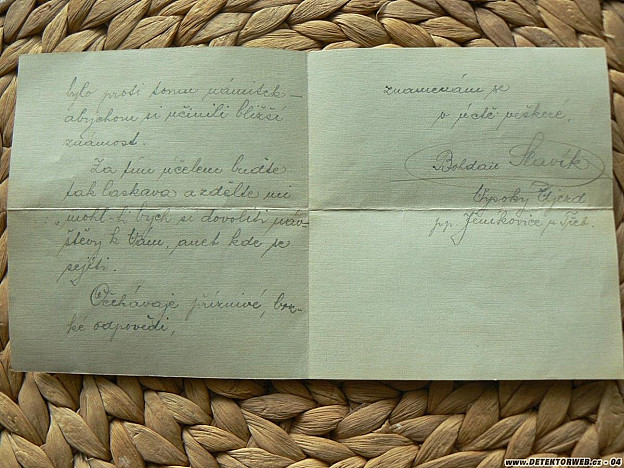 bylo proti tomu námitek –
abychom si učinili bližší
známost.
Za tím účelem buďte
tak laskava a zdělte mi
mohl-li bych si dovoliti náv-
štěvy k Vám, anet kde se
sejíti.
Očekávaje příznivé, brz-
ké odpovědi,
znamenám se
v úctě veškeré,
Bohdan Slavík
Vysoký Újezd
pp. Jeníkovice p. Třeb.
www.DETEKTORWEB.cz - 04